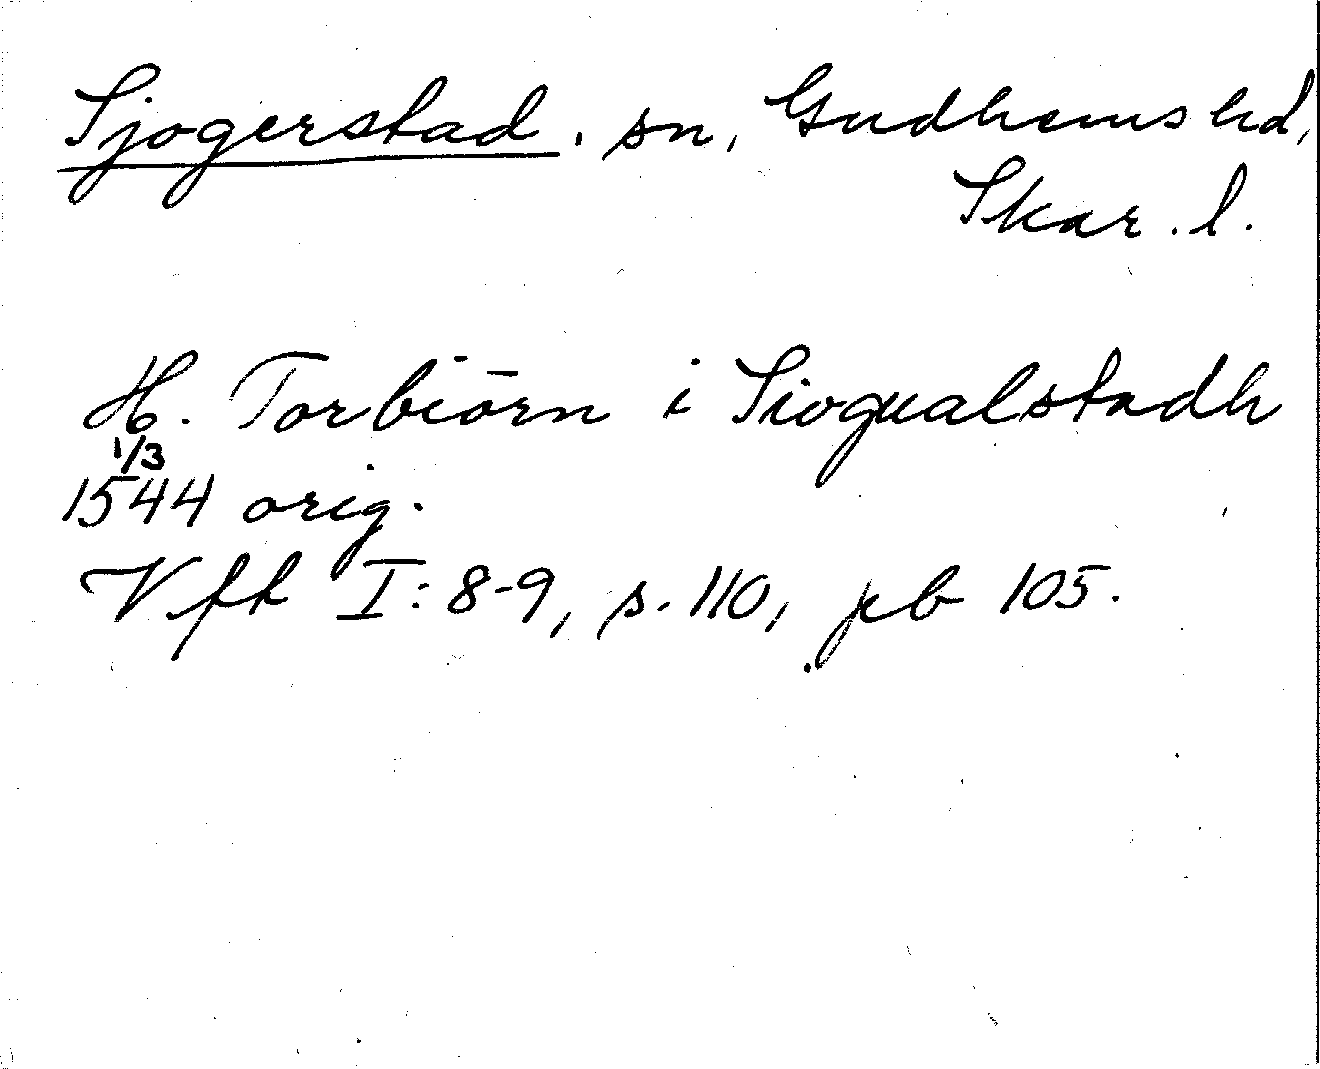 Sjogerstad. sn, Gudhems hd,
Skar. l.
H. Torbiörn i Siogualstadh
1/3
1544 orig.
Vfh I: 8-9, s. 110, pb 105.